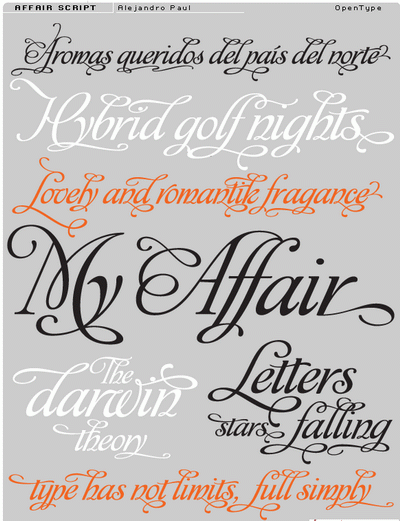 AFFAIR SCRIPT Alejandro Paul OpenType
Aromas queridos del país del norte
Hybrid golf nights
Lovely and romantik fragance
My Affair
The
darwin
theory
Letters
stars falling
type has not limits, full simply